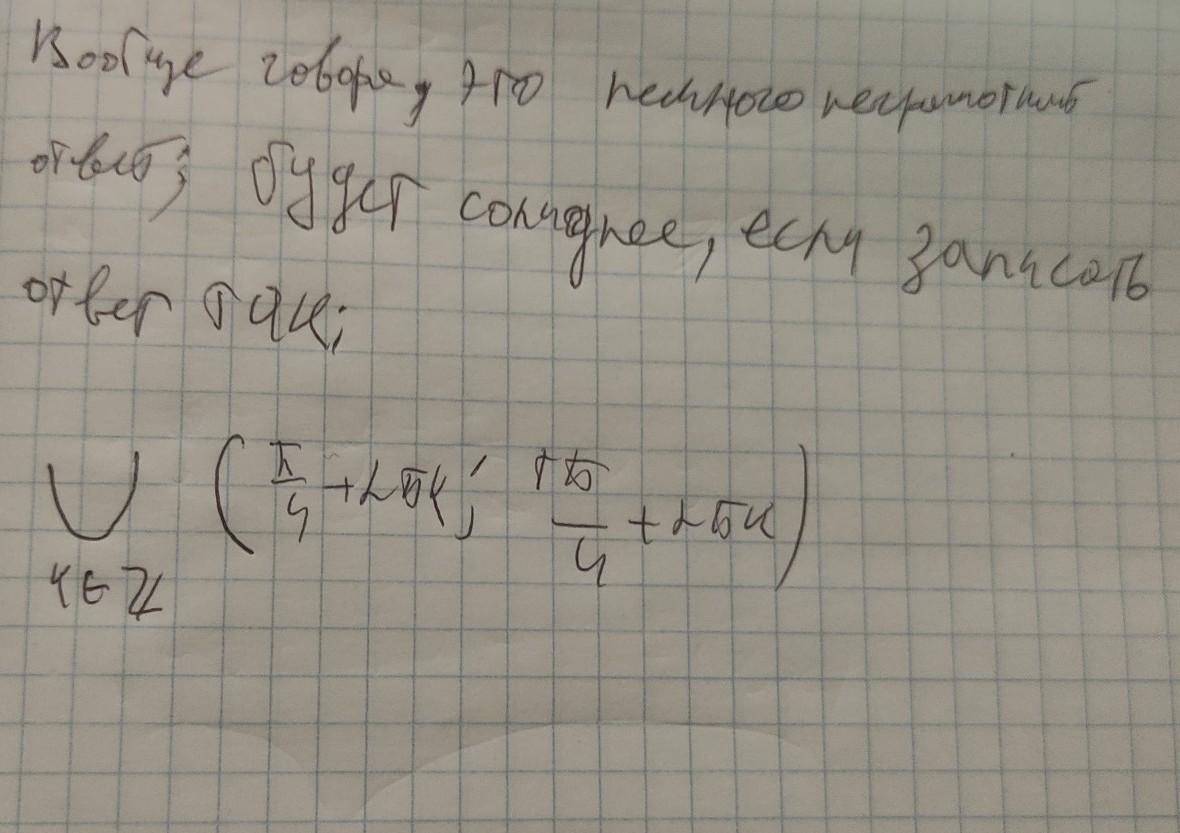 Вообще говоря, это немного неграмотный
ответ; будет солиднее, если записать
ответ так:
⋃ (π/4 + 2πk; 5π/4 + 2πk)
k∈ℤ